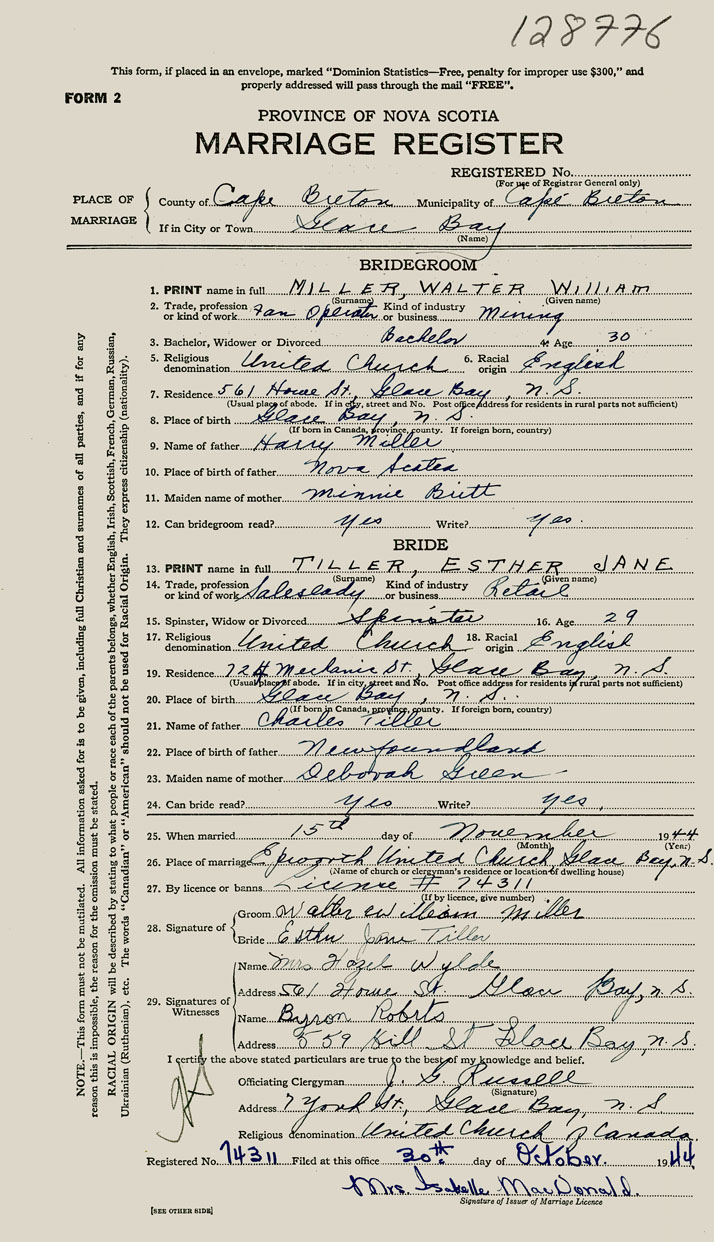 128776
This form, if placed in an envelope, marked “Dominion Statistics—Free, penalty for improper use $300,” and
properly addressed will pass through the mail “FREE”.
FORM 2
PROVINCE OF NOVA SCOTIA
MARRIAGE REGISTER
REGISTERED No.
(For use of Registrar General only)
PLACE OF MARRIAGE
County of Cape Breton Municipality of Cape Breton
If in City or Town Glace Bay
(Name)
BRIDEGROOM
1. PRINT name in full MILLER, WALTER WILLIAM
(Surname) (Given name)
2. Trade, profession or kind of work Fan Operator Kind of industry or business Mining
3. Bachelor, Widower or Divorced Bachelor 4. Age 30
5. Religious denomination United Church 6. Racial origin English
7. Residence 561 Howe St., Glace Bay, N.S.
(Usual place of abode. If in city, street and No. Post office address for residents in rural parts not sufficient)
8. Place of birth Glace Bay, N.S.
(If born in Canada, province, county. If foreign born, country)
9. Name of father Harry Miller
10. Place of birth of father Nova Scotia
11. Maiden name of mother Minnie Britt
12. Can bridegroom read? yes Write? yes.
BRIDE
13. PRINT name in full TILLER, ESTHER JANE
(Surname) (Given name)
14. Trade, profession or kind of work Saleslady Kind of industry or business Retail
15. Spinster, Widow or Divorced Spinster 16. Age 29
17. Religious denomination United Church 18. Racial origin English
19. Residence Mechanic St., Glace Bay, N.S.
(Usual place of abode. If in city, street and No. Post office address for residents in rural parts not sufficient)
20. Place of birth Glace Bay, N.S.
(If born in Canada, province, county. If foreign born, country)
21. Name of father Charles Tiller
22. Place of birth of father Newfoundland
23. Maiden name of mother Deborah Green
24. Can bride read? yes Write? yes,
25. When married 15th day of November 1944
(Month) (Year)
26. Place of marriage Epworth United Church, Glace Bay, N.S.
(Name of church or clergyman's residence or location of dwelling house)
27. By licence or banns License # 74311
(If by licence, give number)
28. Signature of
Groom Walter William Miller
Bride Esther Jane Tiller
29. Signatures of Witnesses
Name Mrs Hazel Wylde
Address 561 Howe St. Glace Bay, N.S.
Name Byron Roberts
Address 559 Hill St Glace Bay, N.S.
I certify the above stated particulars are true to the best of my knowledge and belief.
Officiating Clergyman J. G. Russell
(Signature)
Address 7 York St., Glace Bay, N.S.
Religious denomination United Church of Canada.
Registered No. 74311 Filed at this office 30th day of October. 1944
Mrs. Isabelle MacDonald.
Signature of Issuer of Marriage Licence
[SEE OTHER SIDE]
NOTE.—This form must not be mutilated. All information asked for is to be given, including full Christian and surnames of all parties, and if for any
reason this is impossible, the reason for the omission must be stated.
RACIAL ORIGIN will be described by stating to what people or race each of the parents belongs, whether English, Irish, Scottish, French, German, Russian,
Ukrainian (Ruthenian), etc. The words “Canadian” or “American” should not be used for Racial Origin. They express citizenship (nationality).